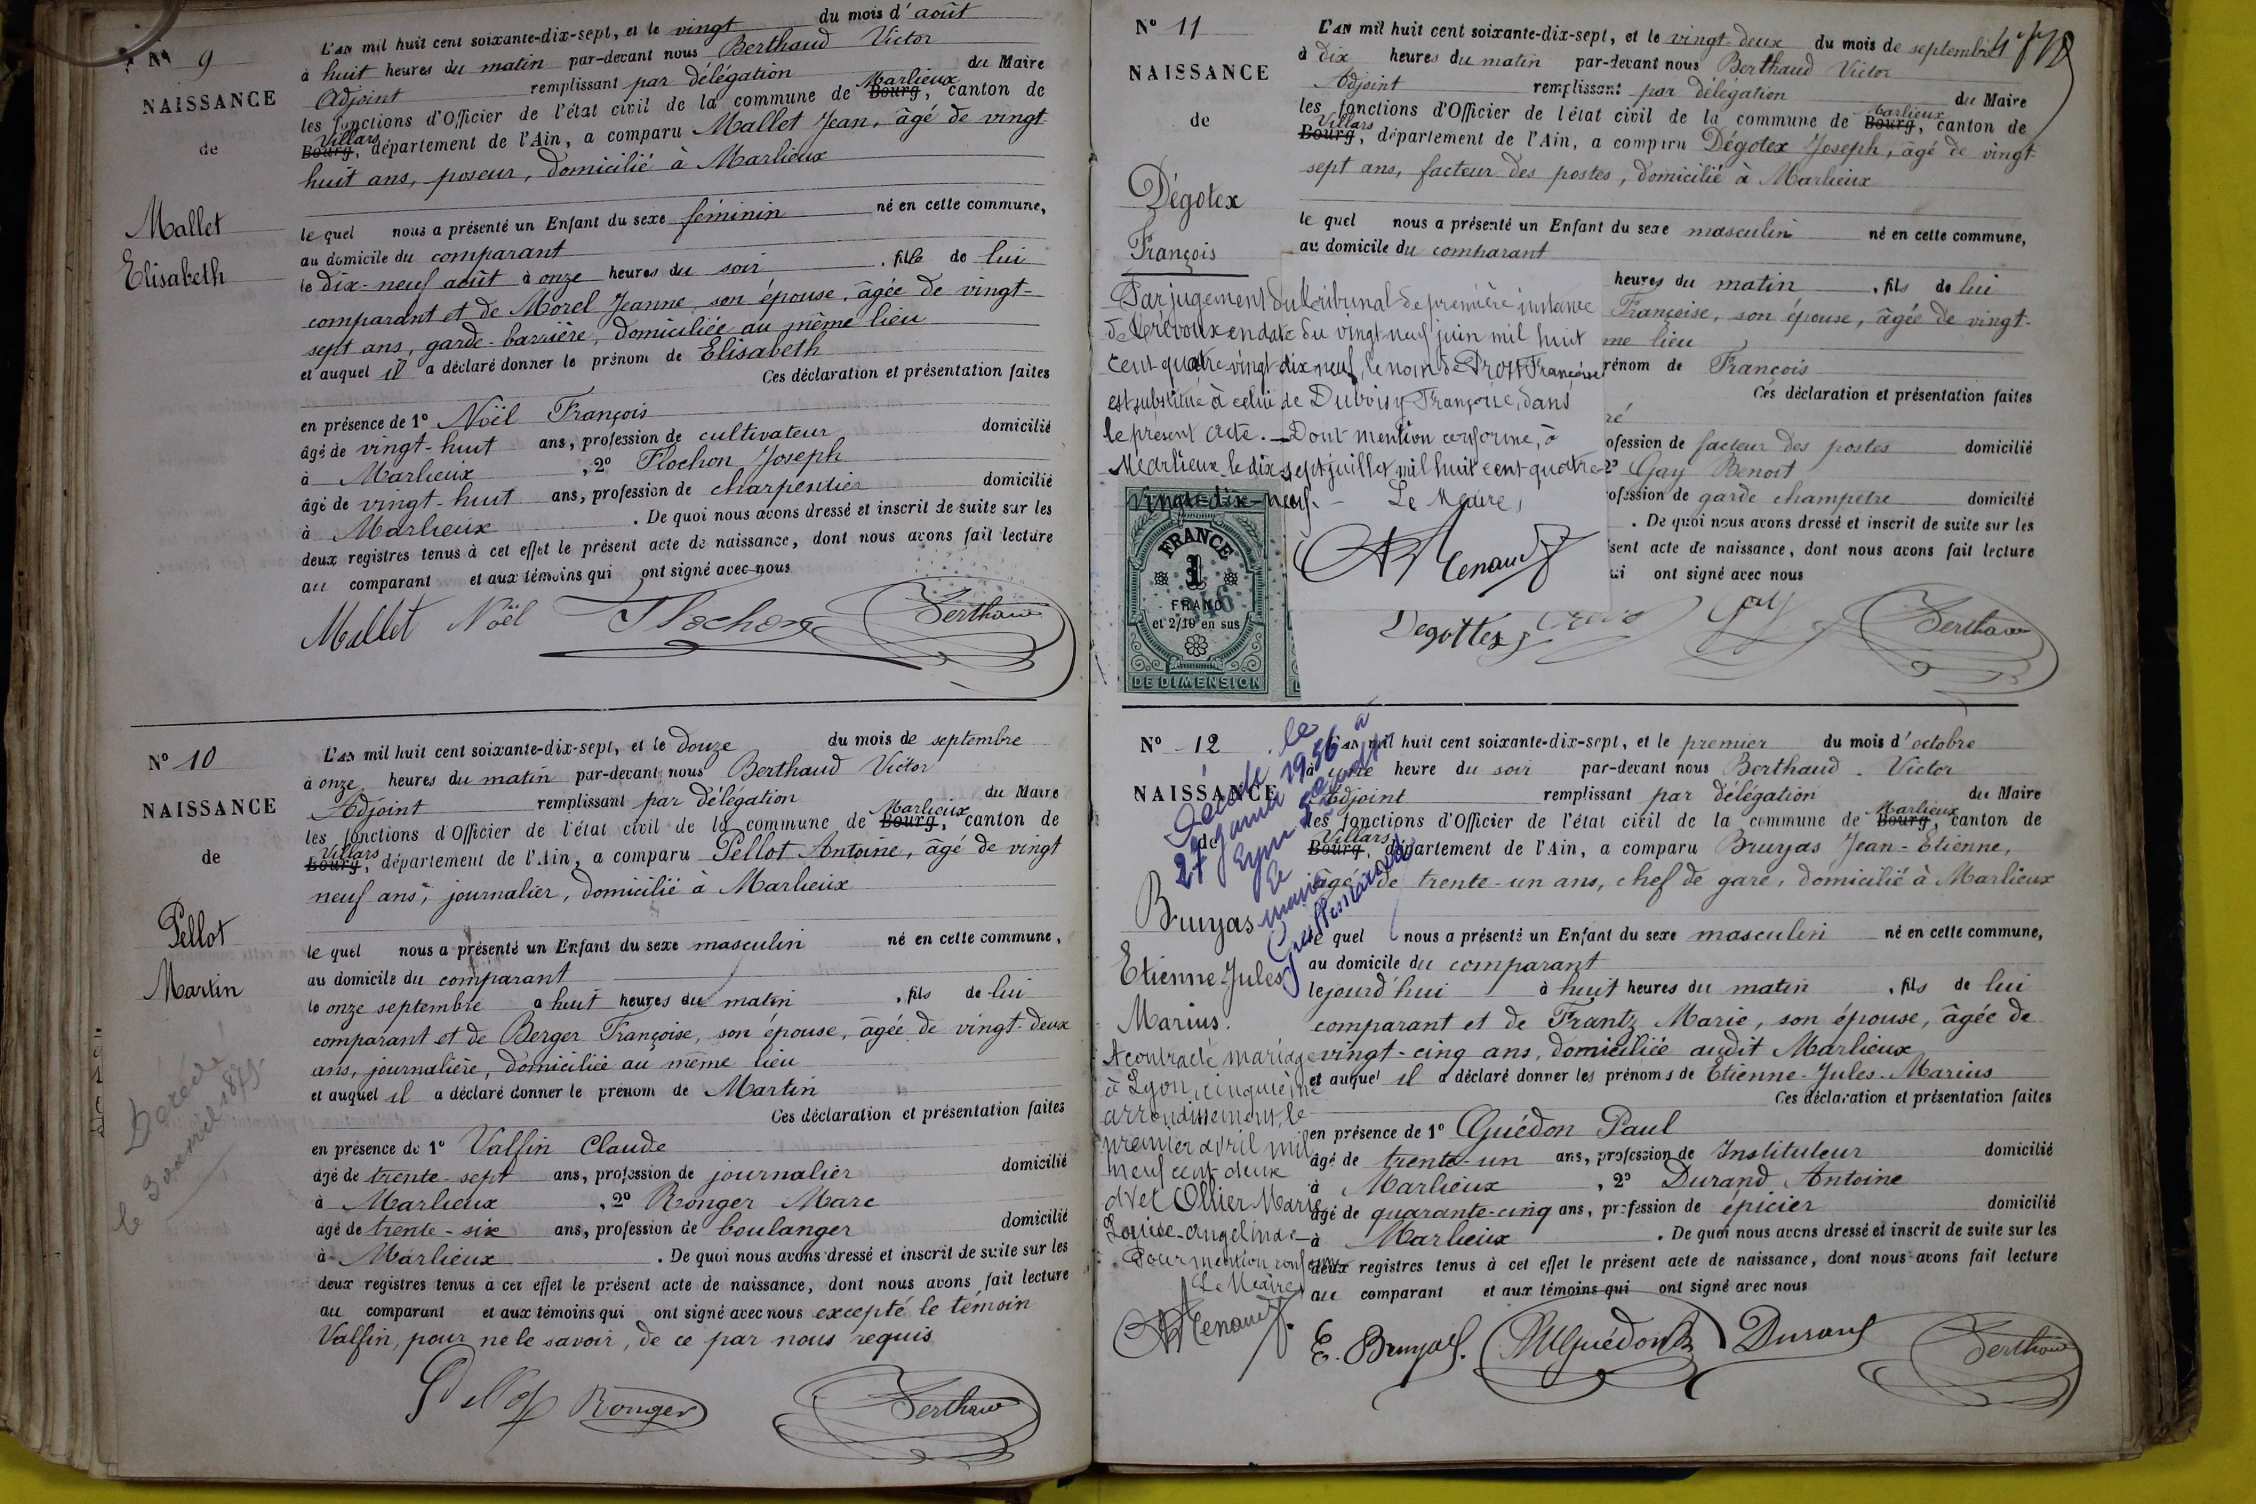 N° 9
NAISSANCE
de
Mallet
Elisabeth
L'an mil huit cent soixante-dix-sept, et le vingt du mois d'août
à huit heures du matin par-devant nous Berthaud Victor
Adjoint remplissant par délégation du Maire
les fonctions d'Officier de l'état civil de la commune de Bourg Marlieux, canton de
Bourg Villars, département de l'Ain, a comparu Mallet Jean, âgé de vingt
huit ans, poseur, domicilié à Marlieux
le quel nous a présenté un Enfant du sexe féminin né en cette commune,
au domicile du comparant
le dix-neuf août à onze heures du soir, fille de lui
comparant et de Morel Jeanne, son épouse, âgée de vingt-
sept ans, garde-barrière, domiciliée au même lieu
et auquel il a déclaré donner le prénom de Elisabeth
Ces déclaration et présentation faites
en présence de 1° Noël François
âgé de vingt-huit ans, profession de cultivateur domicilié
à Marlieux, 2° Flochon Joseph
âgé de vingt-huit ans, profession de charpentier domicilié
à Marlieux. De quoi nous avons dressé et inscrit de suite sur les
deux registres tenus à cet effet le présent acte de naissance, dont nous avons fait lecture
au comparant et aux témoins qui ont signé avec nous
Mallet Noël Flochon Berthaud
N° 10
NAISSANCE
de
Pellot
Martin
Décédé
le 3 avril 1875
L'an mil huit cent soixante-dix-sept, et le douze du mois de septembre
à onze heures du matin par-devant nous Berthaud Victor
Adjoint remplissant par délégation du Maire
les fonctions d'Officier de l'état civil de la commune de Bourg Marlieux, canton de
Bourg Villars, département de l'Ain, a comparu Pellot Antoine, âgé de vingt
neuf ans, journalier, domicilié à Marlieux
le quel nous a présenté un Enfant du sexe masculin né en cette commune,
au domicile du comparant
le onze septembre à huit heures du matin, fils de lui
comparant et de Berger Françoise, son épouse, âgée de vingt-deux
ans, journalière, domiciliée au même lieu
et auquel il a déclaré donner le prénom de Martin
Ces déclaration et présentation faites
en présence de 1° Valfin Claude
âgé de trente-sept ans, profession de journalier domicilié
à Marlieux, 2° Ronger Marc
âgé de trente-six ans, profession de boulanger domicilié
à Marlieux. De quoi nous avons dressé et inscrit de suite sur les
deux registres tenus à cet effet le présent acte de naissance, dont nous avons fait lecture
au comparant et aux témoins qui ont signé avec nous excepté le témoin
Valfin, pour ne le savoir, de ce par nous requis
Pellot Ronger Berthaud
N° 11
NAISSANCE
de
Dégotex
François
L'an mil huit cent soixante-dix-sept, et le vingt-deux du mois de septembre
à dix heures du matin par-devant nous Berthaud Victor
Adjoint remplissant par délégation du Maire
les fonctions d'Officier de l'état civil de la commune de Bourg Marlieux, canton de
Bourg Villars, département de l'Ain, a comparu Dégotex Joseph, âgé de vingt-
sept ans, facteur des postes, domicilié à Marlieux
le quel nous a présenté un Enfant du sexe masculin né en cette commune,
au domicile du comparant
heures du matin, fils de lui
Françoise, son épouse, âgée de vingt-
me lieu
rénom de François
Ces déclaration et présentation faites
ré
ofession de facteur des postes domicilié
2° Gay Benoit
ofession de garde champetre domicilié
. De quoi nous avons dressé et inscrit de suite sur les
sent acte de naissance, dont nous avons fait lecture
ui ont signé avec nous
Degottex Gay Berthaud
Par jugement du tribunal de première instance
de Trévoux en date du vingt neuf juin mil huit
cent quatre vingt dix neuf, le nom de Prost Françoise
est substitué à celui de Duboisy Françoise, dans
le présent acte. — Dont mention conforme, à
Marlieux le dix-sept juillet mil huit cent quatre-
vingt-dix-neuf. — Le Maire,
FRANCE
1
FRANC
et 2/10 en sus
DE DIMENSION
N° 12
NAISSANCE
de
Bruyas
Etienne-Jules
Marius.
Décédé le
27 janvier 1956 à
Lyon
Le maire
A contracté mariage
à Lyon, cinquième
arrondissement, le
premier avril mil
neuf cent deux
avec Ollier Marie
Louise-Angelina —
Pour mention conforme
Le Maire
L'an mil huit cent soixante-dix-sept, et le premier du mois d'octobre
à une heure du soir par-devant nous Berthaud Victor
Adjoint remplissant par délégation du Maire
les fonctions d'Officier de l'état civil de la commune de Bourg Marlieux, canton de
Bourg Villars, département de l'Ain, a comparu Bruyas Jean-Etienne,
âgé de trente-un ans, chef de gare, domicilié à Marlieux
le quel nous a présenté un Enfant du sexe masculin né en cette commune,
au domicile du comparant
le jourd'hui à huit heures du matin, fils de lui
comparant et de Frantz Marie, son épouse, âgée de
vingt-cinq ans, domiciliée audit Marlieux
et auquel il a déclaré donner les prénoms de Etienne-Jules-Marius
Ces déclaration et présentation faites
en présence de 1° Guédon Paul
âgé de trente-un ans, profession de Instituteur domicilié
à Marlieux, 2° Durand Antoine
âgé de quarante-cinq ans, profession de épicier domicilié
à Marlieux. De quoi nous avons dressé et inscrit de suite sur les
deux registres tenus à cet effet le présent acte de naissance, dont nous avons fait lecture
au comparant et aux témoins qui ont signé avec nous
E. Bruyas. Guédon Durand Berthaud